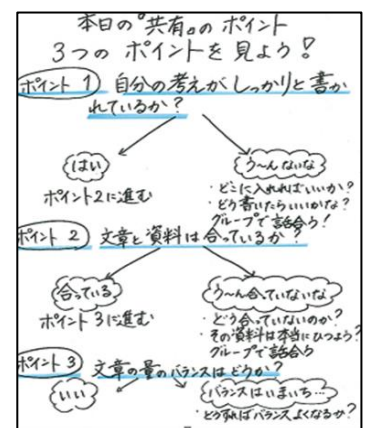 本日の『共有』のポイント
3つのポイントを見よう!
ポイント1 自分の考えがしっかりと書か
れているか?
はい う〜んないな
ポイント2に進む ・どこに入れればいいか?
・どう書いたらいいかな?
グループで話合う!
ポイント2 文章と資料は合っているか?
合っている う〜ん合っていないな
ポイント3に進む ・どう合っていないのか?
・その資料は本当にひつよう?
グループで話合う
ポイント3 文章の量のバランスはどうか?
いい バランスはいまいち…
・どうすればバランスよくなるか?